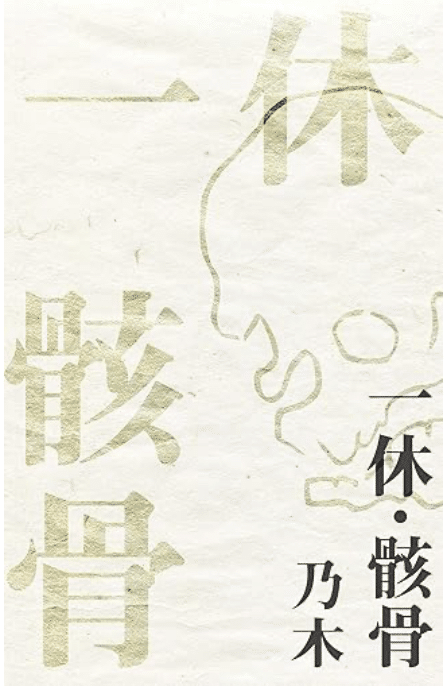 一休
骸骨
一休・骸骨
乃木